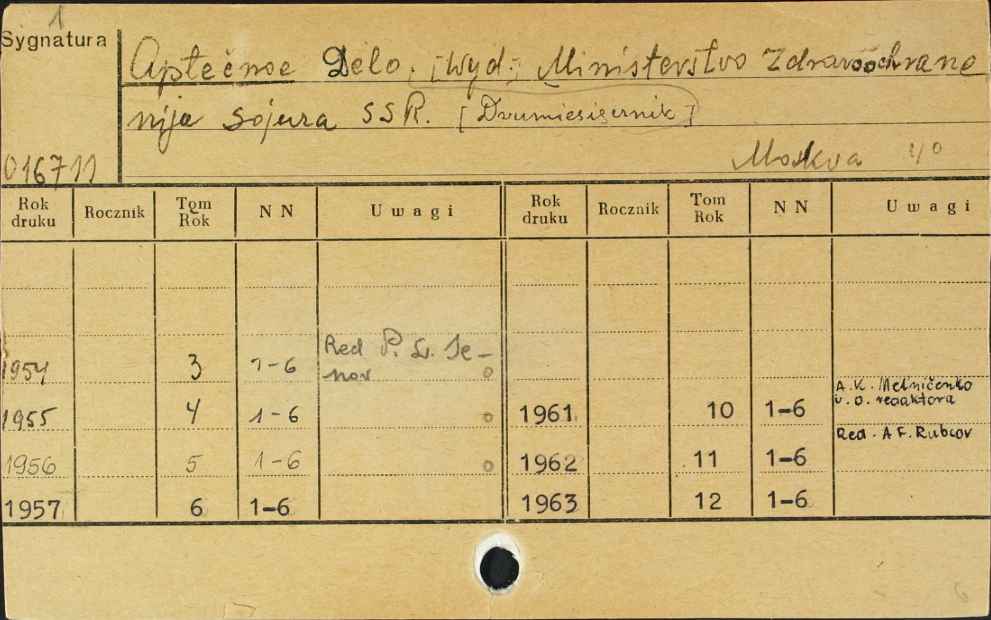 1
Sygnatura
Aptečnoe Delo. [Wyd.: Ministerstvo Zdravoochrane
nija Sojuza SSR. [Dwumiesięcznik]
016711 Moskva 4°
Rok druku Rocznik Tom Rok NN Uwagi Rok druku Rocznik Tom Rok NN Uwagi
1954 3 1-6 Red P. L. Se-
nov o
1955 4 1-6 o 1961 10 1-6 A. K. Melničenko
v. o. redaktora
1956 5 1-6 o 1962 11 1-6 Red. A F. Rubcov
1957 6 1-6 1963 12 1-6
6